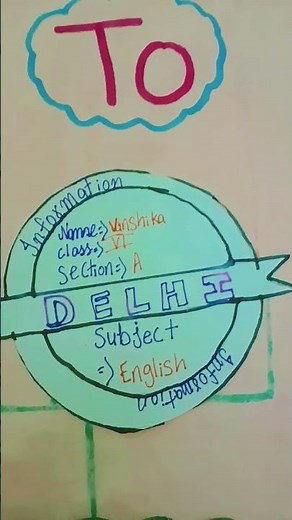 To
Information
Name=> Vanshika
Class=> VI
Section=> A
DELHI
Subject
=> English
Information